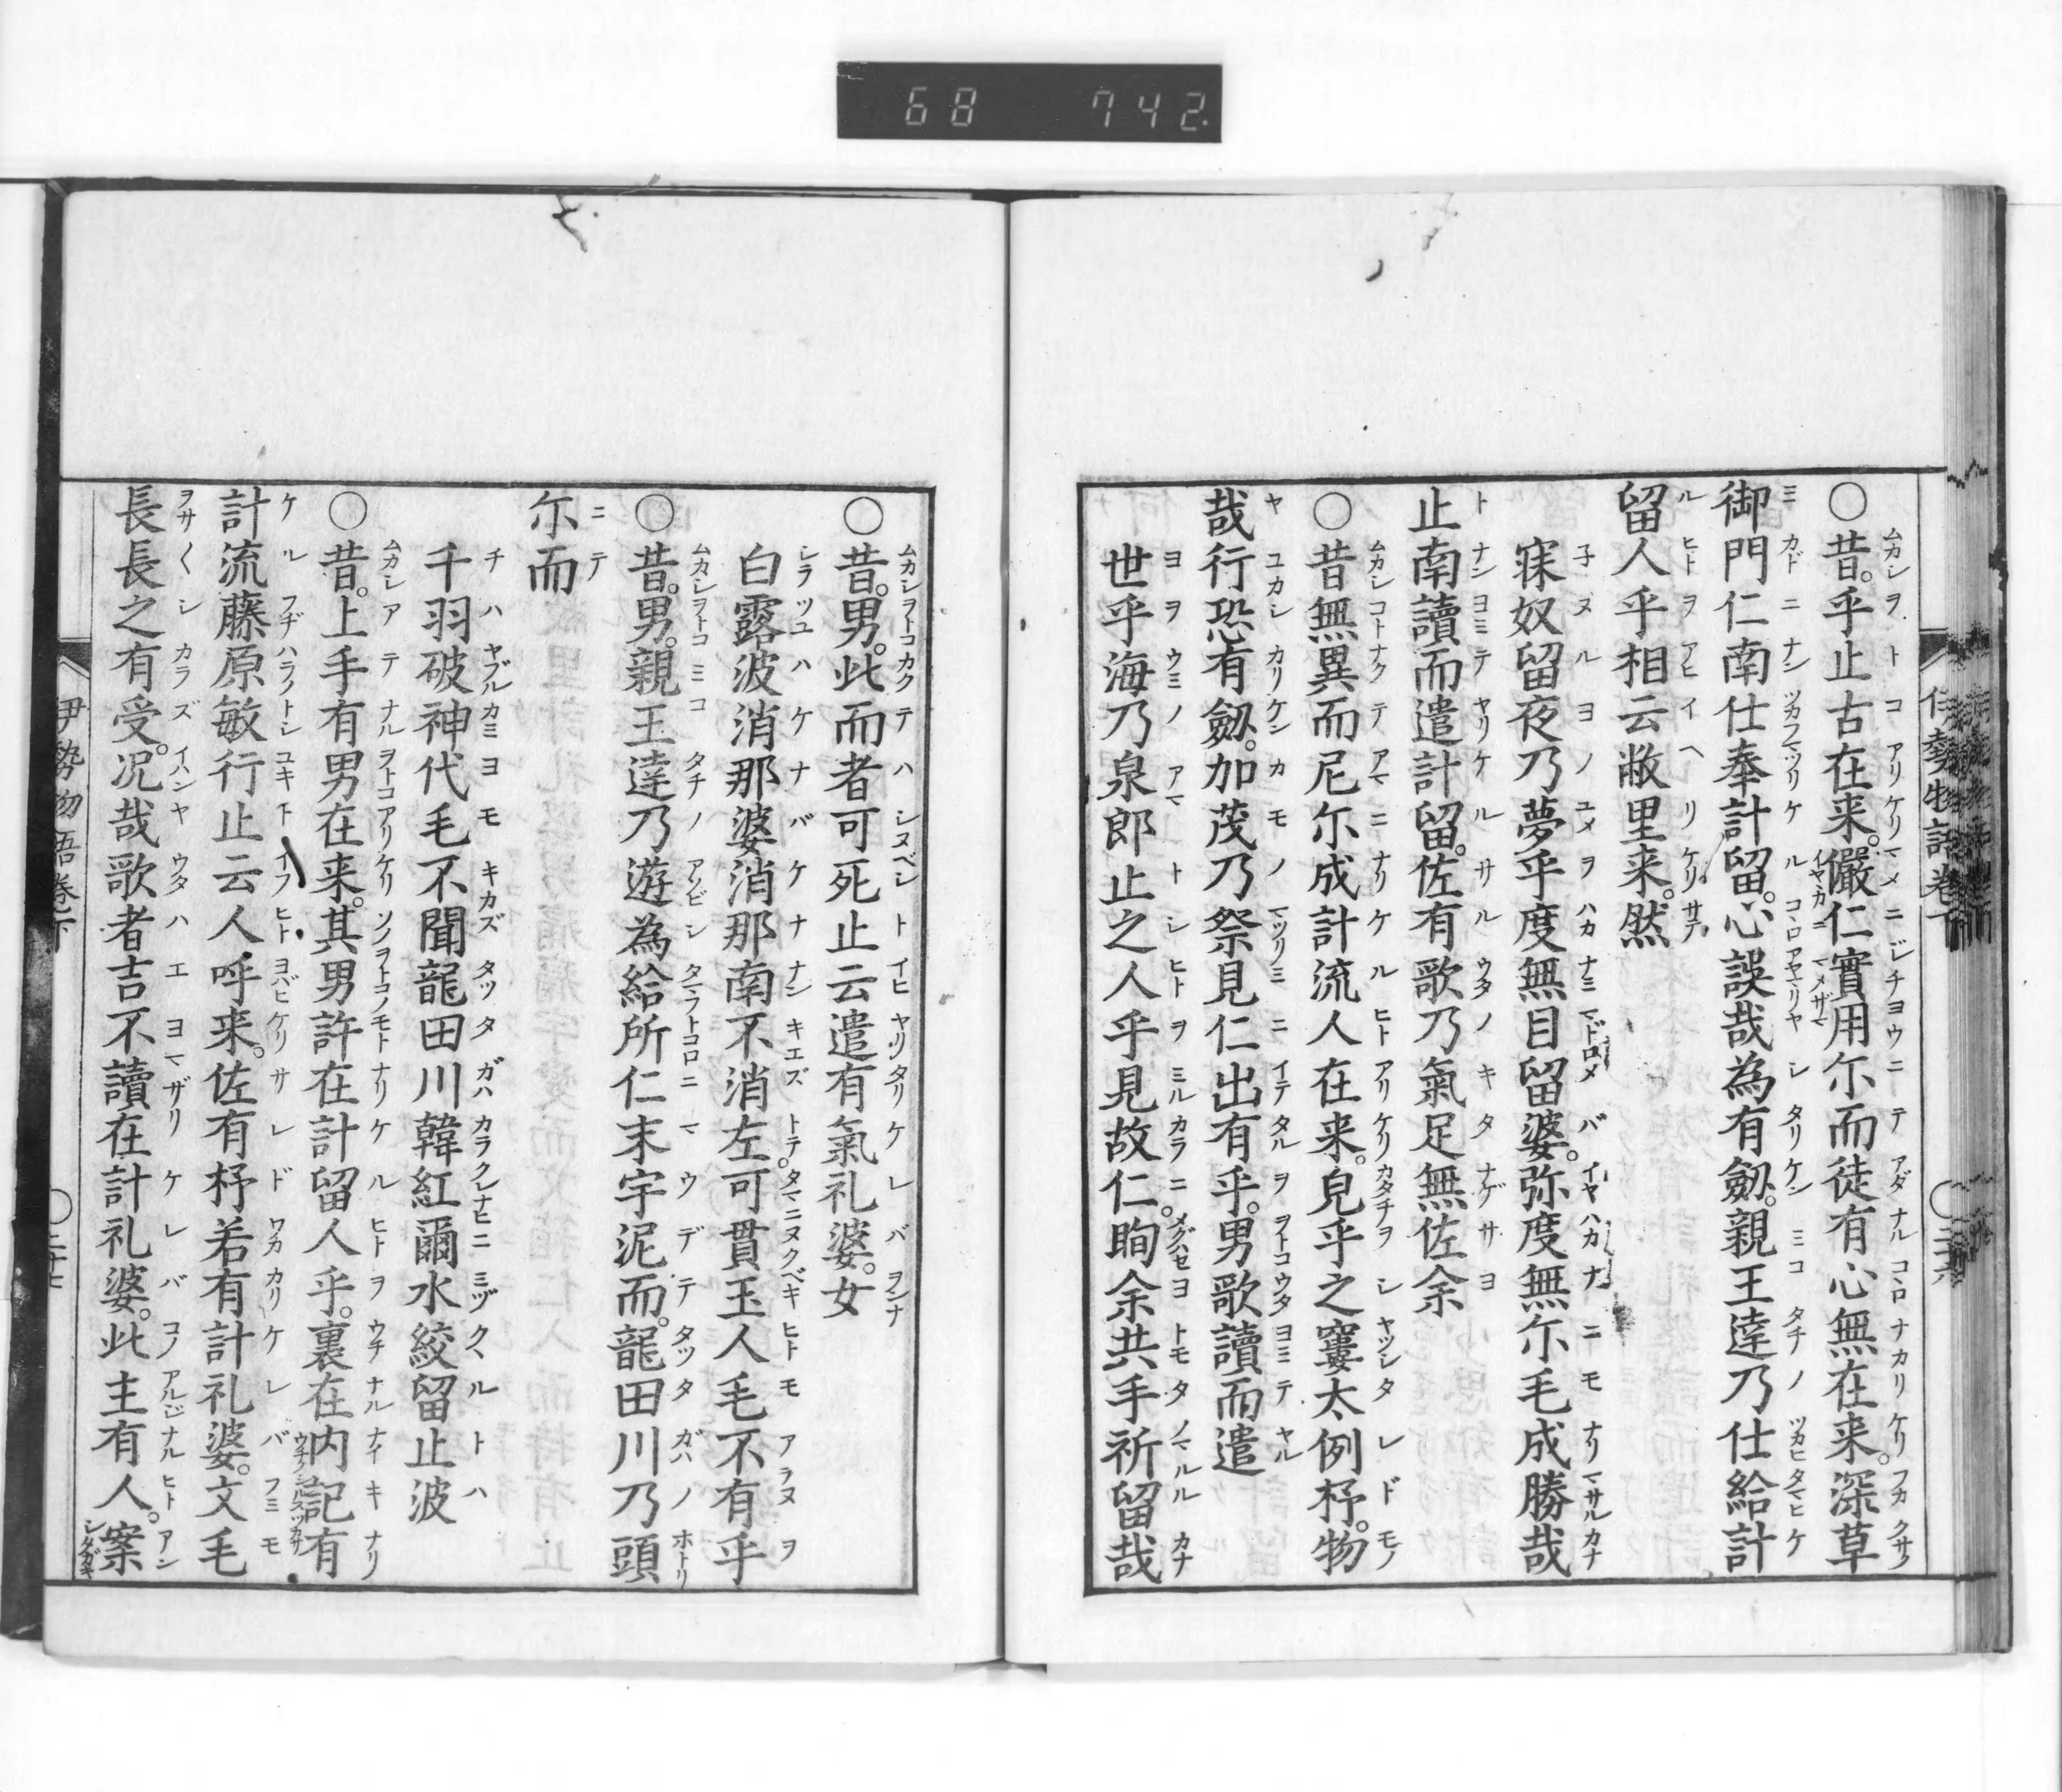 68 742
伊勢物語卷下
〇昔。乎止古在来。儼仁實用尓而徒有心無在来。深草
御門仁南仕奉計留。心誤哉為有劔。親王達乃仕給計
留人乎相云敝里来。然
寐奴留夜乃夢乎度無目留婆。弥度無尓毛成勝哉
止南讀而遣計留。佐有歌乃氣足無佐余
〇昔無異而尼尓成計流人在来。皃乎之窶太例杼。物
哉行恐有劔。加茂乃祭見仁出有乎。男歌讀而遣
世乎海乃泉郎止之人乎見故仁。眴余共手祈留哉
〇昔。男。此而者可死止云遣有氣礼婆。女
白露波消那婆消那南不消左可貫玉人毛不有乎
〇昔。男。親王達乃遊為給所仁末宇泥而。龍田川乃頭
尓而
千羽破神代毛不聞龍田川韓紅爾水絞留止波
〇昔。上手有男在来。其男許在計留人乎。裏在内記有
計流藤原敏行止云人呼来。佐有杼若有計礼婆。文毛
長長之有受。况哉歌者吉不讀在計礼婆。此主有人。案
伊勢物語卷下
二十七